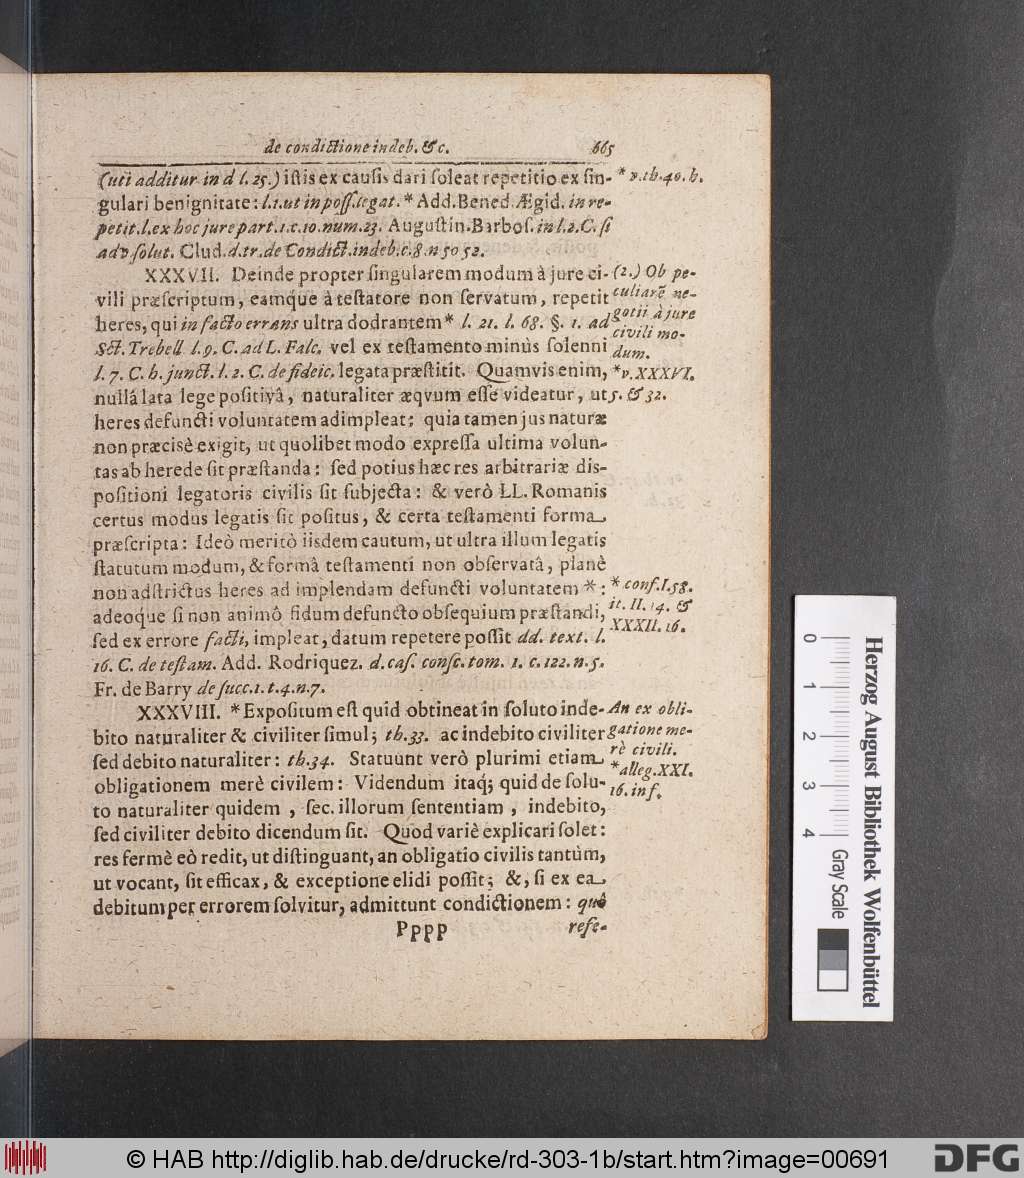 de condictione indeb. &c. 665
(uti additur in d l. 25.) istis ex causis dari soleat repetitio ex sin- * v. th. 40. h.
gulari benignitate: l. 1. ut in poss. legat. * Add. Bened. Ægid. in re-
petit. l. ex hoc jure part. 1. c. 10. num. 23. Augustin. Barbos. in l. 2. C. si
adv. solut. Clud. d. tr. de Condict. indeb. c. 8. n 50 52.
XXXVII. Deinde propter singularem modum à jure ci- (2.) Ob pe-
vili præscriptum, eamque à testatore non servatum, repetit culiarē ne-
heres, qui in facto errans ultra dodrantem * l. 21. l. 68. §. 1. ad gotii à jure
Sct. Trebell l. 9. C. ad L. Falc. vel ex testamento minùs solenni civili mo-
dum.
l. 7. C. h. junct. l. 2. C. de fideic. legata præstitit. Quamvis enim, * v. XXXVI.
nullâ lata lege positivâ, naturaliter æqvum esse videatur, ut 5. & 32.
heres defuncti voluntatem adimpleat: quia tamen jus naturæ
non præcisè exigit, ut quolibet modo expressa ultima volun-
tas ab herede sit præstanda: sed potius hæc res arbitrariæ dis-
positioni legatoris civilis sit subjecta: & verò LL. Romanis
certus modus legatis sit positus, & certa testamenti forma
præscripta: Ideò meritò iisdem cautum, ut ultra illum legatis
statutum modum, & formâ testamenti non observatâ, planè
non adstrictus heres ad implendam defuncti voluntatem *: * conf. I. 58.
adeoque si non animô fidum defuncto obsequium præstandi, it. II. 14. &
sed ex errore facti, impleat, datum repetere possit dd. text. l. XXXII. 16.
16. C. de testam. Add. Rodriquez. d. cas. consc. tom. 1. c. 122. n. 5.
Fr. de Barry de succ. l. 1. t. 4. n. 7.
XXXVIII. * Expositum est quid obtineat in soluto inde- An ex obli-
bito naturaliter & civiliter simul; th. 33. ac indebito civiliter gatione me-
sed debito naturaliter: th. 34. Statuunt verò plurimi etiam rè civili.
obligationem merè civilem: Videndum itaq; quid de solu- * alleg. XXI.
to naturaliter quidem, sec. illorum sententiam, indebito, 16. inf.
sed civiliter debito dicendum sit. Quod variè explicari solet:
res fermè eò redit, ut distinguant, an obligatio civilis tantùm,
ut vocant, sit efficax, & exceptione elidi possit; &, si ex ea
debitum per errorem solvitur, admittunt condictionem: quò
Pppp refe-
Herzog August Bibliothek Wolfenbüttel
0 1 2 3 4 Gray Scale
© HAB http://diglib.hab.de/drucke/rd-303-1b/start.htm?image=00691
DFG